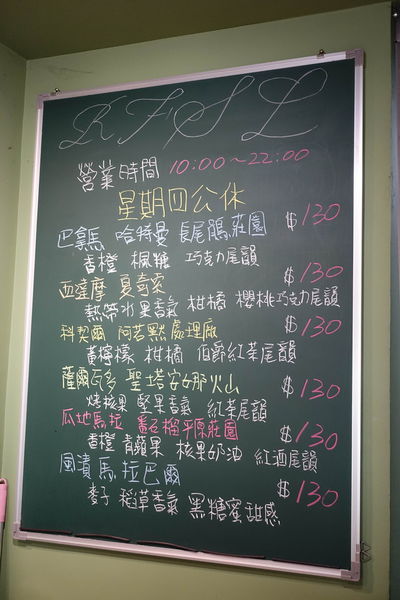 RFSL
營業時間 10:00~22:00
星期四公休
巴拿馬 哈特曼 長尾鵑莊園 $130
香橙 楓糖 巧克力尾韻
西達摩 夏奇索 $130
熱帶水果香氣 柑橘 櫻桃巧克力尾韻
科契爾 阿若默處理廠 $130
黃檸檬 柑橘 伯爵紅茶尾韻
薩爾瓦多 聖塔安娜火山 $130
烤核果 堅果香氣 紅茶尾韻
瓜地馬拉 番石榴平原莊園 $130
香橙 青蘋果 核果奶油 紅酒尾韻
風漬馬拉巴爾 $130
麥子 稻草香氣 黑糖蜜甜感